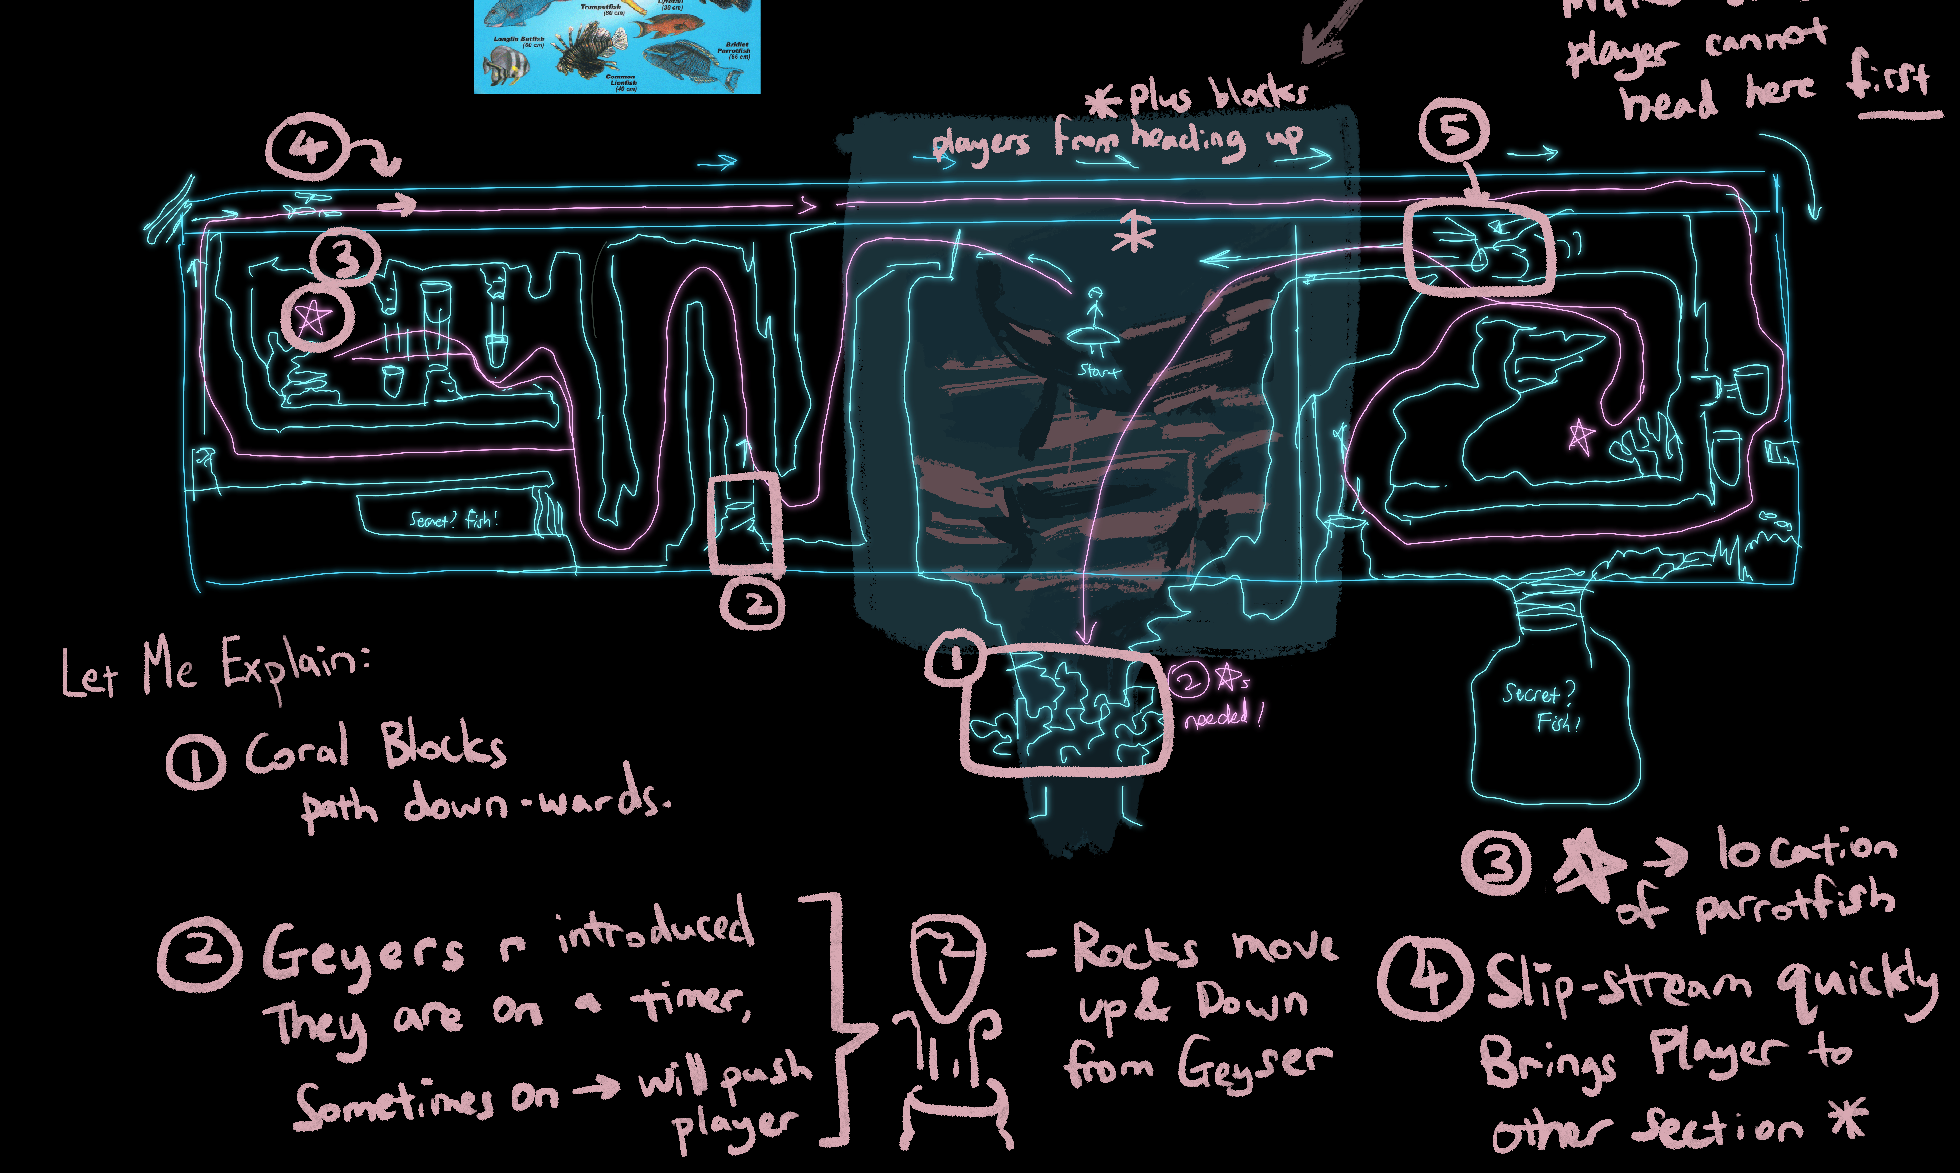 Trumpetfish
(80 cm)
(30 cm)
Longfin Batfish
(50 cm)
Common
Lionfish
(40 cm)
Bridled
Parrotfish
player cannot
head here first
* Plus blocks
players from heading up
4
5
3
Start
Secret? Fish!
2
1
2 ☆s
needed!
Secret?
Fish!
Let Me Explain:
1 Coral Blocks
path down-wards.
2 Geyers r introduced
They are on a timer,
Sometimes on → will push
player
- Rocks move
up & Down
from Geyser
3 ☆ → location
of parrotfish
4 Slip-stream quickly
Brings Player to
other section *